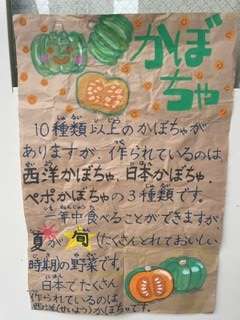 かぼ
ちゃ
10種類以上のかぼちゃが
ありますが、作られているのは、
西洋かぼちゃ、日本かぼちゃ、
ペポかぼちゃの3種類です。
一年中食べることができますが
夏が旬(たくさんとれておいしい
時期)の野菜です。
日本でたくさん
作られているのは、
西洋(せいよう)かぼちゃです。